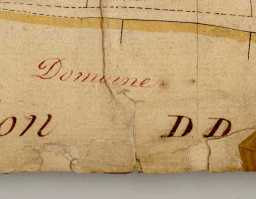 Domaine
on D D